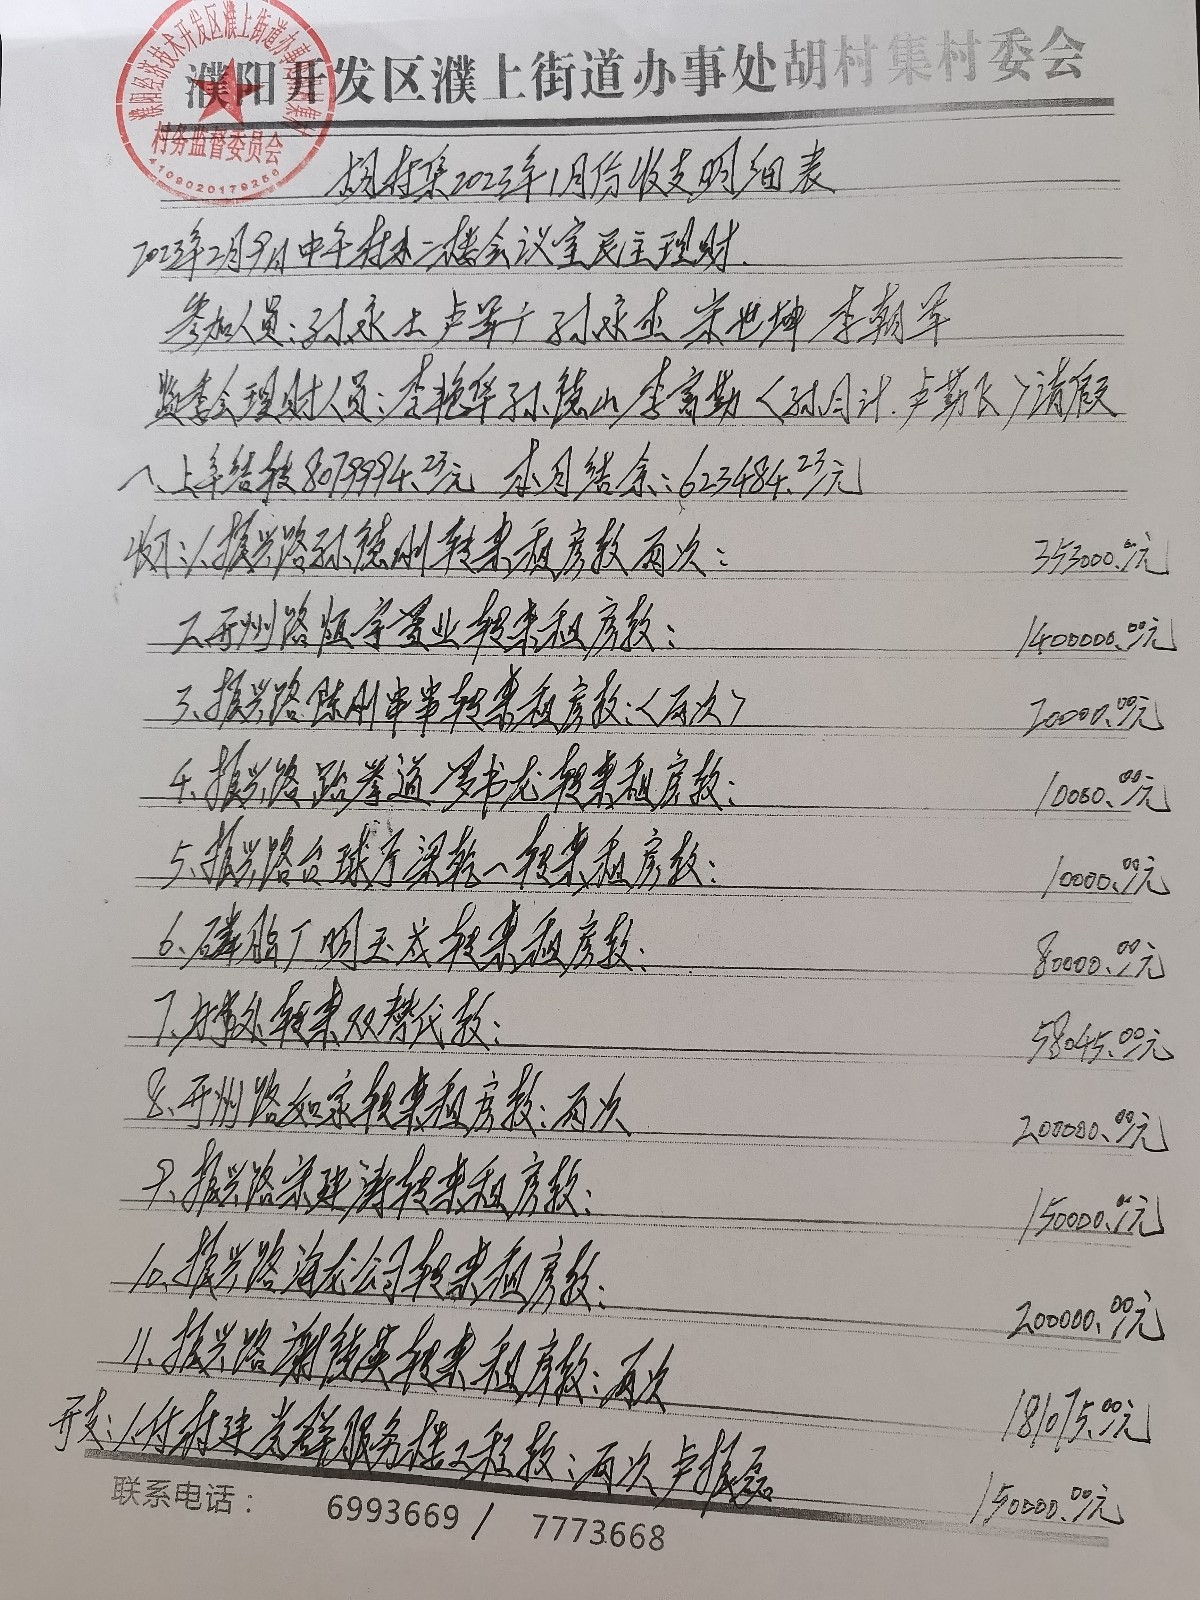 濮阳开发区濮上街道办事处胡村集村委会
濮阳经济技术开发区濮上街道办事处胡村集村
村务监督委员会
4109020179256
胡村集2023年1月份收支明细表
2023年2月9日中午村办二楼会议室民主理财.
参加人员:孙永士 卢军 孙永杰 宋世坤 李朝军
监委会理财人员:李艳华 孙德山 李富勤〈孙月计.卢勤飞〉请假
一、上年结转8079994.23元 本月结余:623484.23元
收入:1、振兴路孙德刚转来租房款两次: 353000.00元
2、开州路恒宇置业转来租房款: 1400000.00元
3、振兴路陈刚串串转来租房款:〈两次〉 20000.00元
4、振兴路跆拳道罗书龙转来租房款: 10000.00元
5、振兴路台球厅梁乾一转来租房款: 10000.00元
6、磷脂厂明玉成转来租房款: 80000.00元
7、办事处转来双替代款: 58045.00元
8、开州路如家转来租房款:两次 200000.00元
9、振兴路宋建涛转来租房款: 150000.00元
10、振兴路海龙公司转来租房款: 200000.00元
11、振兴路谢德英转来租房款:两次 181075.00元
开支:1、付村建党群服务楼工程款:两次 卢振磊 150000.00元
联系电话: 6993669 / 7773668